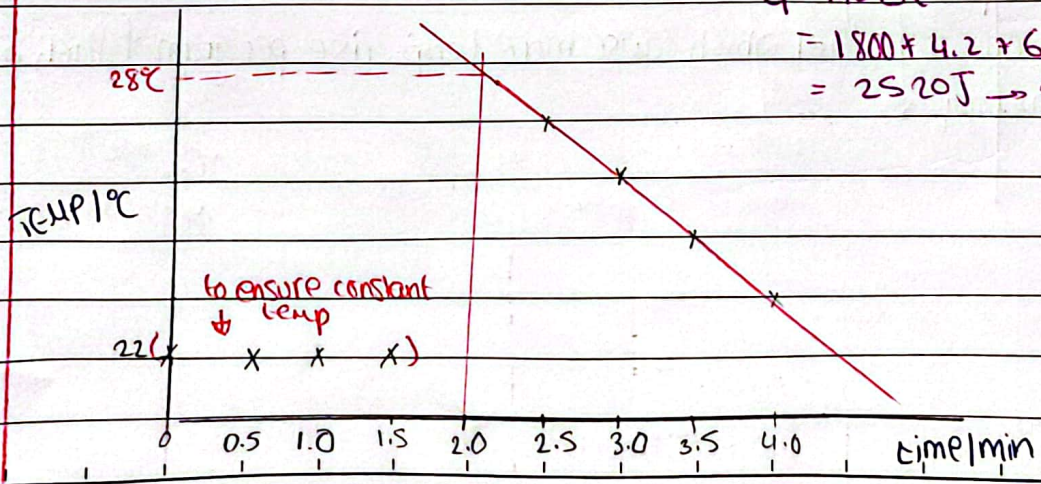 = 1800 * 4.2 * 6
= 2520J →
28℃
TEMP/℃
to ensure constant
temp
22(
)
0 0.5 1.0 1.5 2.0 2.5 3.0 3.5 4.0 time/min